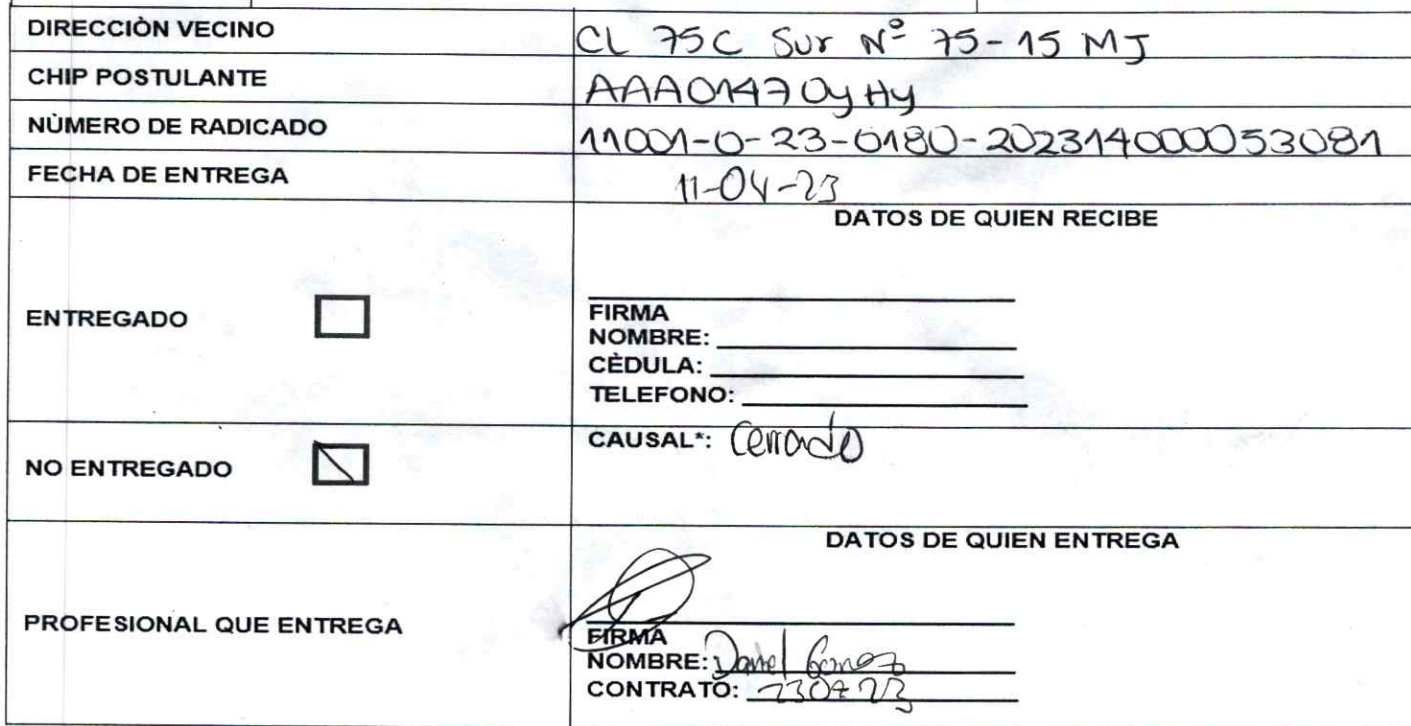 DIRECCIÒN VECINO CL 75C Sur Nº 75-15 MJ
CHIP POSTULANTE AAA0147OyHy
NÙMERO DE RADICADO 11001-0-23-0180-20231400053081
FECHA DE ENTREGA 11-04-23
DATOS DE QUIEN RECIBE
ENTREGADO
FIRMA
NOMBRE:
CÈDULA:
TELEFONO:
NO ENTREGADO
CAUSAL*: Cerrado
DATOS DE QUIEN ENTREGA
PROFESIONAL QUE ENTREGA
FIRMA
NOMBRE: Daniel Gomez
CONTRATO: